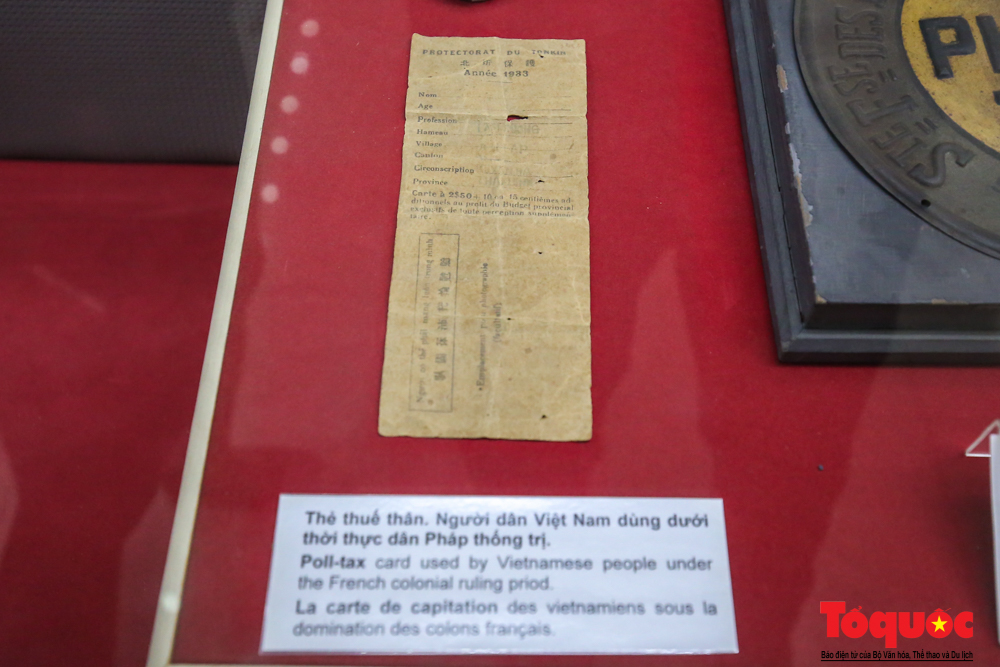 PROTECTORAT DU TONKIN
北圻保護
Année 1933
Nom
Age
Profession
Hameau
Village
Canton
Circonscripting
Province
Carte à 2$50 + 10 et 15 centièmes ad-
ditionnels au profit du Budget provincial
exclusifs de toute perception supplémen-
taire.
Người có thẻ phải mang luôn trong mình
Emplacement pour photographie
(facultatif)
STÉ FSE DES
Thẻ thuế thân. Người dân Việt Nam dùng dưới
thời thực dân Pháp thống trị.
Poll-tax card used by Vietnamese people under
the French colonial ruling priod.
La carte de capitation des vietnamiens sous la
domination des colons français.
Tổ quốc
Báo điện tử của Bộ Văn hóa, Thể thao và Du lịch